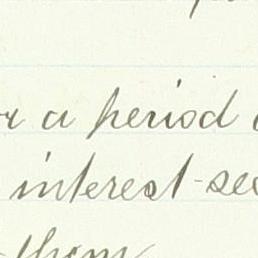 a period
interest-
them